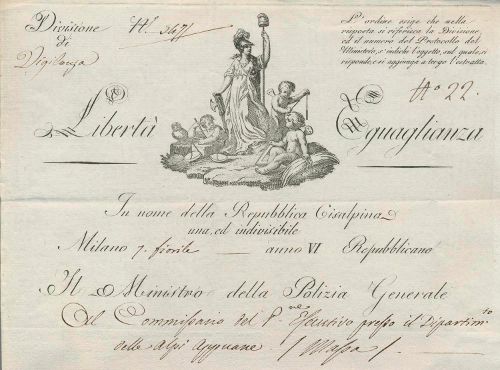 Divisione
di
Vigilanza
N.° 3471
L'ordine esige che nella
risposta si riferisca la Divisione,
ed il numero del Protocollo del
Ministro, s'indichi l'oggetto, sul quale, si
risponde, e si aggiunga a tergo l'estratto.
N.° 22.
Libertà
Eguaglianza
In nome della Repubblica Cisalpina
una, ed indivisibile
Milano 7. fiorile anno VI Repubblicano
Il Ministro della Polizia Generale
Al Commissario del P.re Esecutivo presso il Dipartim.to
delle Alpi Appuane. / Massa /.